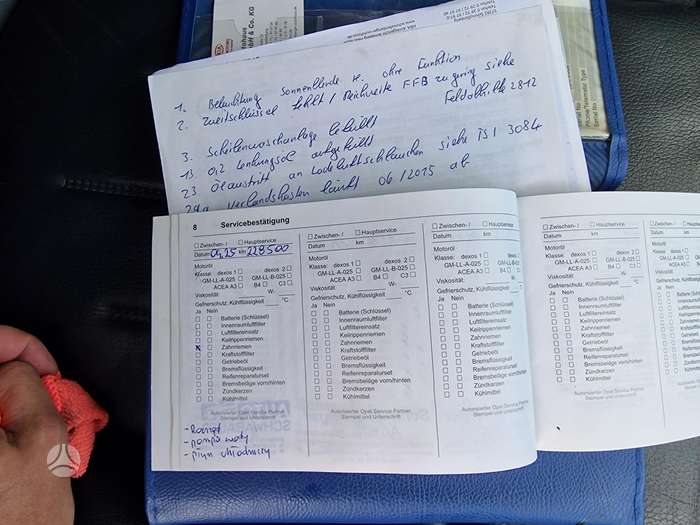 & Co. KG
1. Beleuchtung Sonnenblende re. ohne Funktion
2. Zweitschlüssel fehlt / Reichweite FFB zu gering siehe
Feldabhilfe 2812
3. Scheibenwaschanlage befüllt
13. 0,2 Lenkungsöl aufgefüllt
23 Ölaustritt an Ladeluftschlauchen siehe TSI 3084
29a Verbandskasten läuft 06/2015 ab
8 Servicebestätigung
Zwischen- / Hauptservice
Datum 04.25 km 228500
Motoröl
Klasse: dexos 1 dexos 2
GM-LL-A-025 GM-LL-B-025
ACEA A3 B4 C3
Viskosität W-
Gefrierschutz, Kühlflüssigkeit °C
Ja Nein
Batterie (Schlüssel)
Innenraumluftfilter
Luftfiltereinsatz
Keilrippenriemen
x Zahnriemen
Kraftstofffilter
Getriebeöl
Bremsflüssigkeit
Reifenreparaturset
Bremsbeläge vorn/hinten
Zündkerzen
Kühlmittel
Autorisierter Opel Service Partner
Stempel und Unterschrift
- Rozrząd
- pompa wody
- płyn chłodniczy
Zwischen- / Hauptservice
Datum km
Motoröl
Klasse: dexos 1 dexos 2
GM-LL-A-025 GM-LL-B-025
ACEA A3 B4 C3
Viskosität W-
Gefrierschutz, Kühlflüssigkeit °C
Ja Nein
Batterie (Schlüssel)
Innenraumluftfilter
Luftfiltereinsatz
Keilrippenriemen
Zahnriemen
Kraftstofffilter
Getriebeöl
Bremsflüssigkeit
Reifenreparaturset
Bremsbeläge vorn/hinten
Zündkerzen
Kühlmittel
Autorisierter Opel Service Partner
Stempel und Unterschrift
Zwischen- / Hauptservice
Datum km
Motoröl
Klasse: dexos 1 dexos 2
GM-LL-A-025 GM-LL-B-025
ACEA A3 B4 C3
Viskosität W-
Gefrierschutz, Kühlflüssigkeit °C
Ja Nein
Batterie (Schlüssel)
Innenraumluftfilter
Luftfiltereinsatz
Keilrippenriemen
Zahnriemen
Kraftstofffilter
Getriebeöl
Bremsflüssigkeit
Reifenreparaturset
Bremsbeläge vorn/hinten
Zündkerzen
Kühlmittel
Autorisierter Opel Service Partner
Stempel und Unterschrift
Zwischen- / Hauptservice
Datum km
Motoröl
Klasse: dexos 1 dexos 2
GM-LL-A-025 GM-LL-B-025
ACEA A3 B4 C3
Viskosität W-
Gefrierschutz, Kühlflüssigkeit °C
Ja Nein
Batterie (Schlüssel)
Innenraumluftfilter
Luftfiltereinsatz
Keilrippenriemen
Zahnriemen
Kraftstofffilter
Getriebeöl
Bremsflüssigkeit
Reifenreparaturset
Bremsbeläge vorn/hinten
Zündkerzen
Kühlmittel
Autorisierter Opel Service Partner
Stempel und Unterschrift